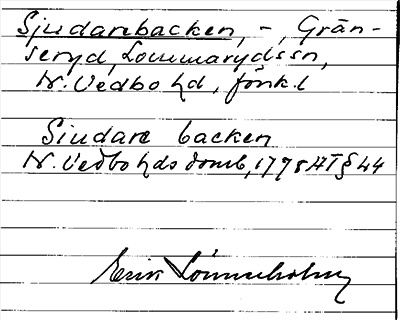 Sjudarebacken, -, Grän-
seryd, Lommarydssn,
N. Vedbo hd, Jönk. l
Siudare backen
N. Vedbo hds domb, 1778 HT § 44
Erik Lönnerholm